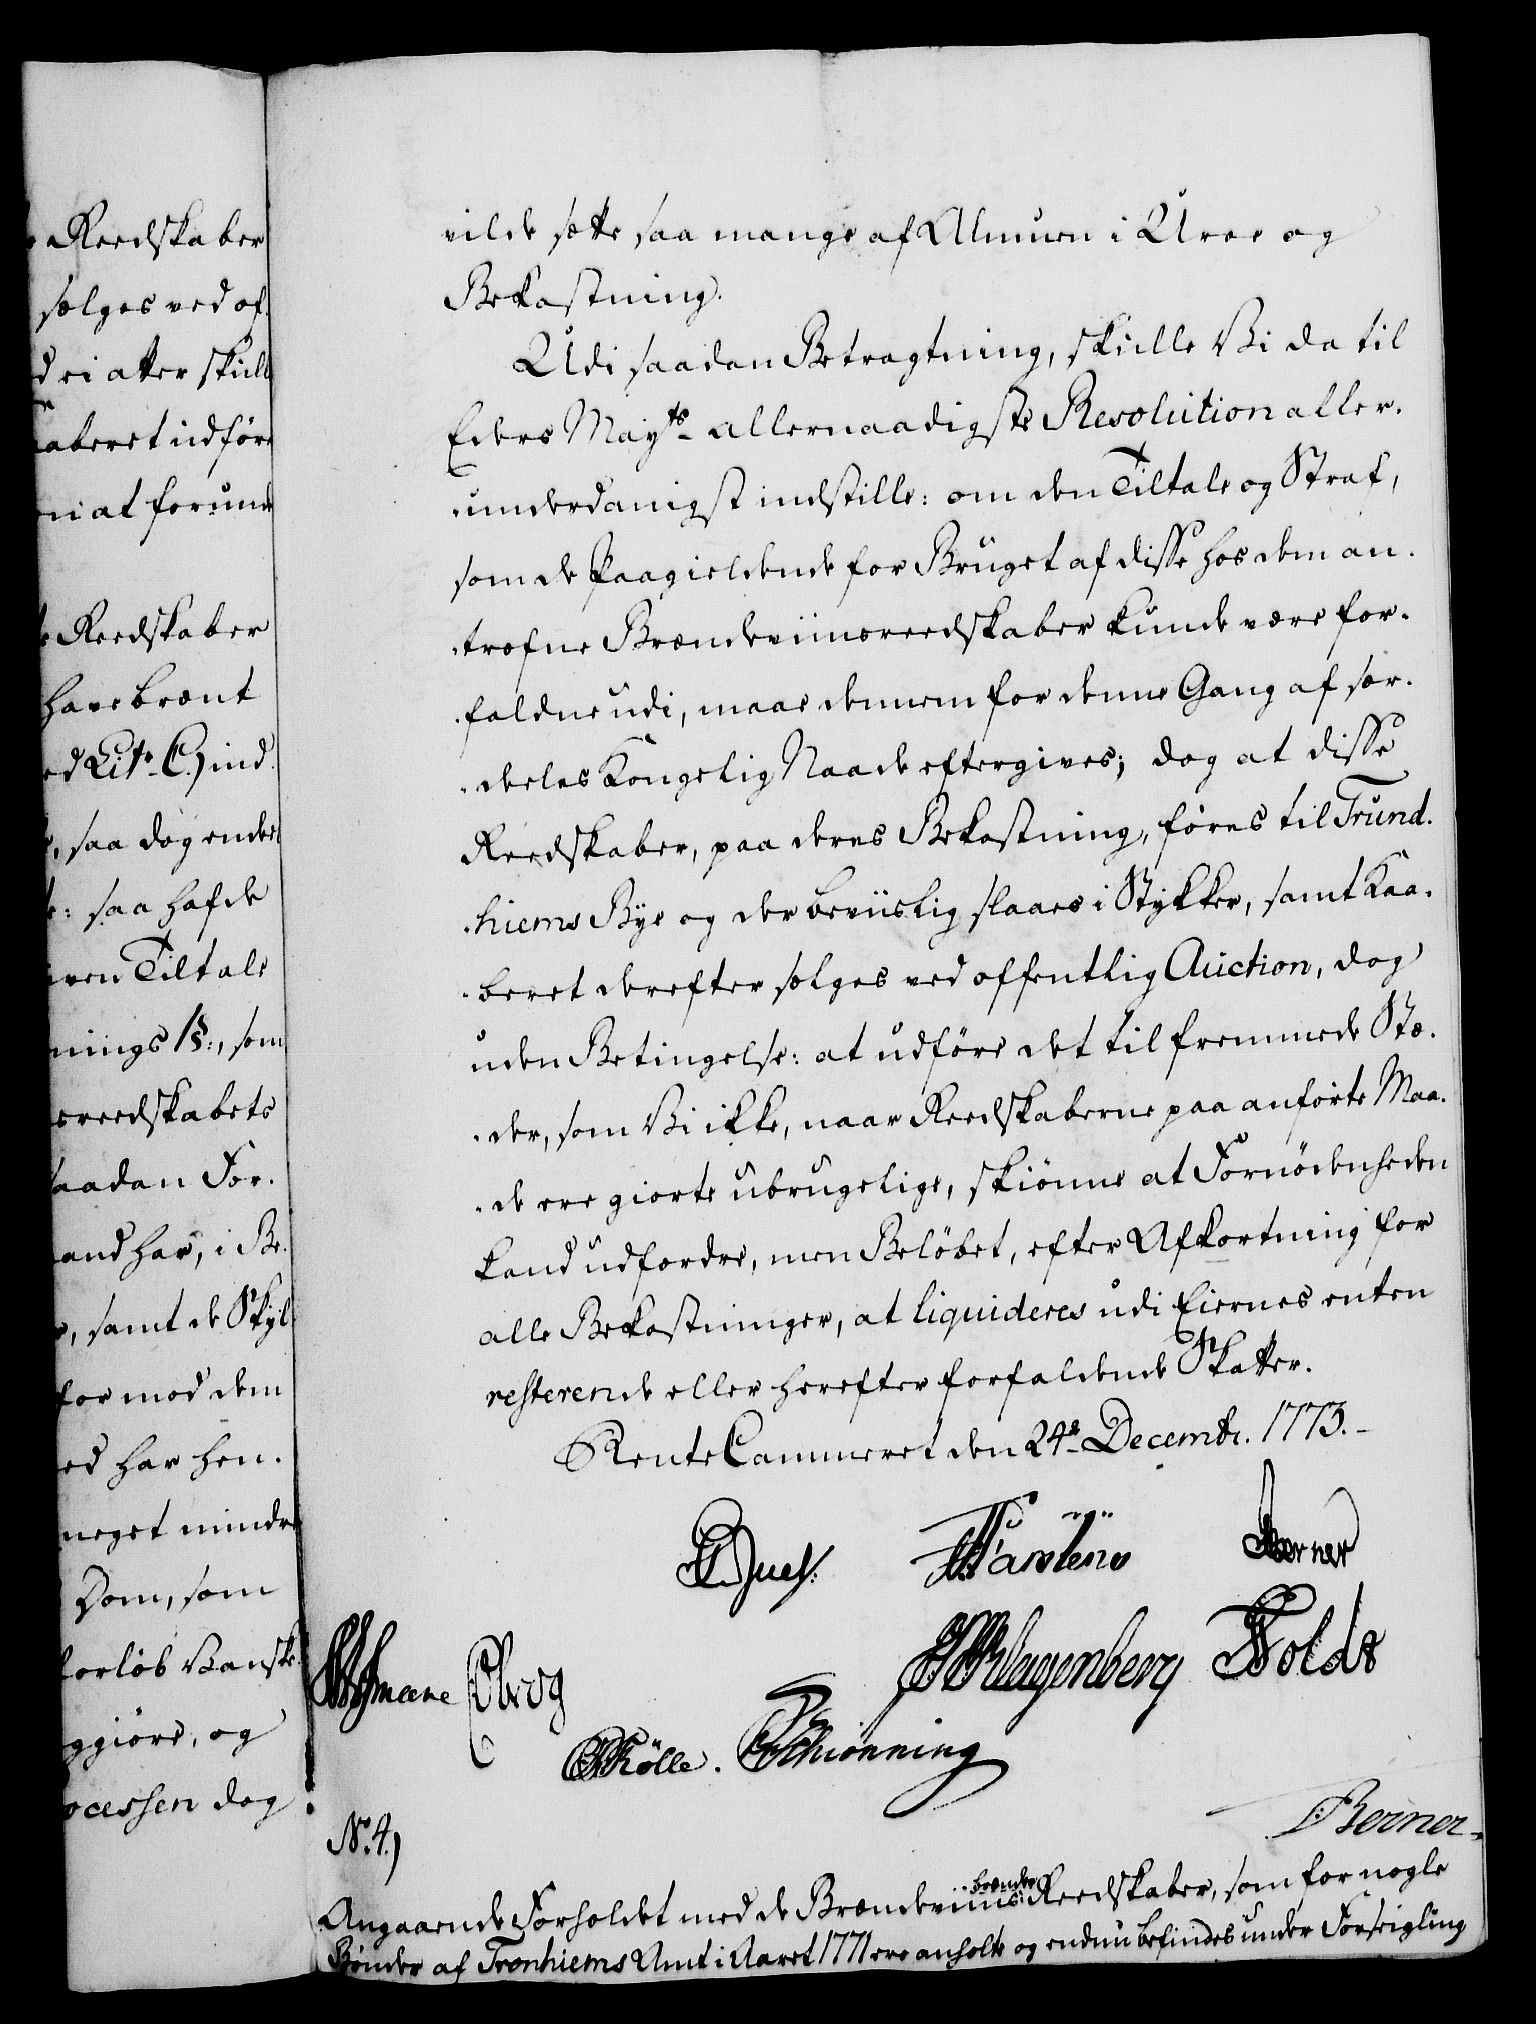 e Reedskaber
sælges ved of.
d ei atter skull
aberet udføre
ni at forund
e Reedskaber
have brænt
ed Lit. C.) ind.
saa dog enden
: saa hafde
ven Tiltale
nings 1 §:, som
sreedskabets
saadan For.
and har, i Be.
, samt de Skyl
for mod dem
ed har hen.
meget mindre
Dom, som
forløb Vanske
ggiøre, og
ocessen dog
vilde sætte saa mange af Almuen i Uroe og
Bekostning.
Udi saadan Betragtning, skulle Vi da til
Eders Mayts. allernaadigste Resolution aller.
.underdanigst indstille: om den Tiltale og Straf,
som de Paagieldende for Bruget af disse hos dem an.
.trofne Brændeviinsreedskaber kunde være for.
.faldne udi, maae dennem for denne Gang af sær.
.deeles Kongelig Naade eftergives; dog at disse
Reedskaber, paa deres Bekostning, føres til Trund.
.hiems Bye og der beviislig slaaes i Stykker, samt Kaa.
.beret derefter sælges ved offentlig Auction, dog
uden Betingelse: at udføre det til fremmede Stæ.
.der, som Vi ikke, naar Reedskaberne paa anførte Maa.
.de ere giorte ubrugelige, skiønne at Fornødenheden
kand udfordre, men Beløbet, efter Afkortning for
alle Bekostninger, at liquideres udi Eiernes enten
resterende eller herefter forfaldende Skatter.
RenteCammeret den 24de Decembr. 1773.
Juel. Carstens Berner
Klagenberg Holdt
Kølle. Schiønning
Berner.
No. 4.)
brænde
Angaaende Forholdet med de Brændeviins Reedskaber, som for nogle
Bønder af Tronhiems Amt i Aaret 1771 ere anholte og endnu befindes under Forseigling